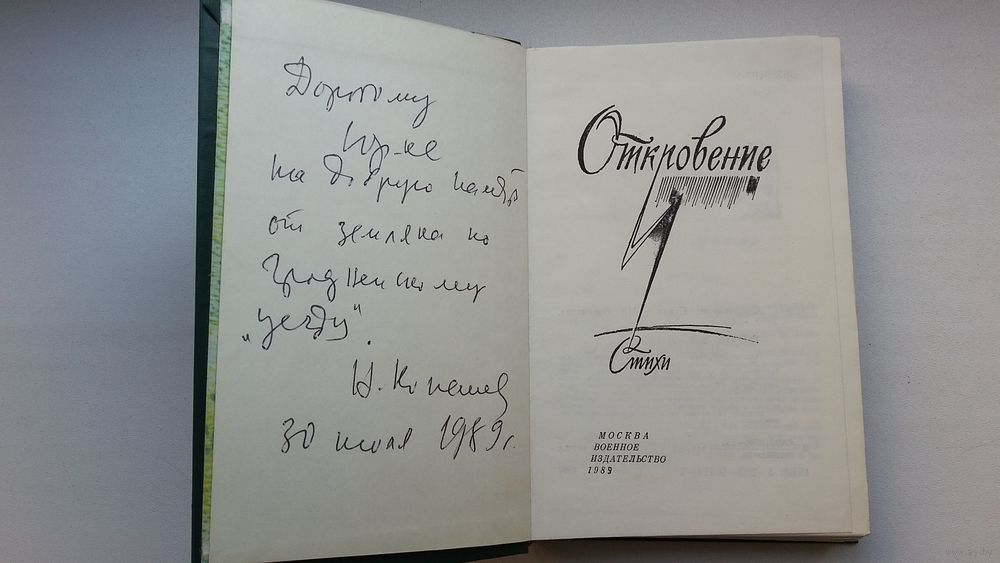 Дорогому
на добрую память
от земляка по
Гродненскому
„уезду".
30 июля 1989 г.
Откровение
Стихи
МОСКВА
ВОЕННОЕ
ИЗДАТЕЛЬСТВО
1989